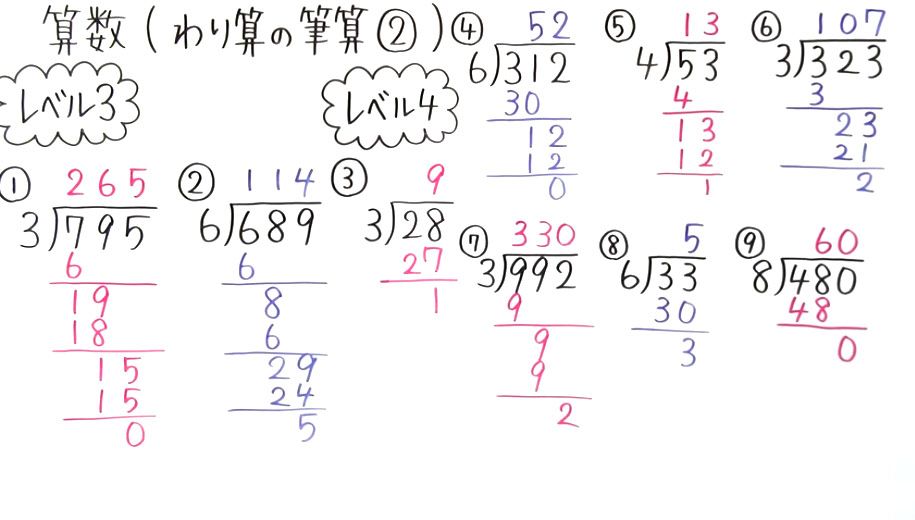 算数(わり算の筆算②)
レベル33
レベル4
①
265
3)795
6
19
18
15
15
0
②
114
6)689
6
8
6
29
24
5
③
9
3)28
27
1
④
52
6)312
30
12
12
0
⑤
13
4)53
4
13
12
1
⑥
107
3)323
3
23
21
2
⑦
330
3)992
9
9
9
2
⑧
5
6)33
30
3
⑨
60
8)480
48
0